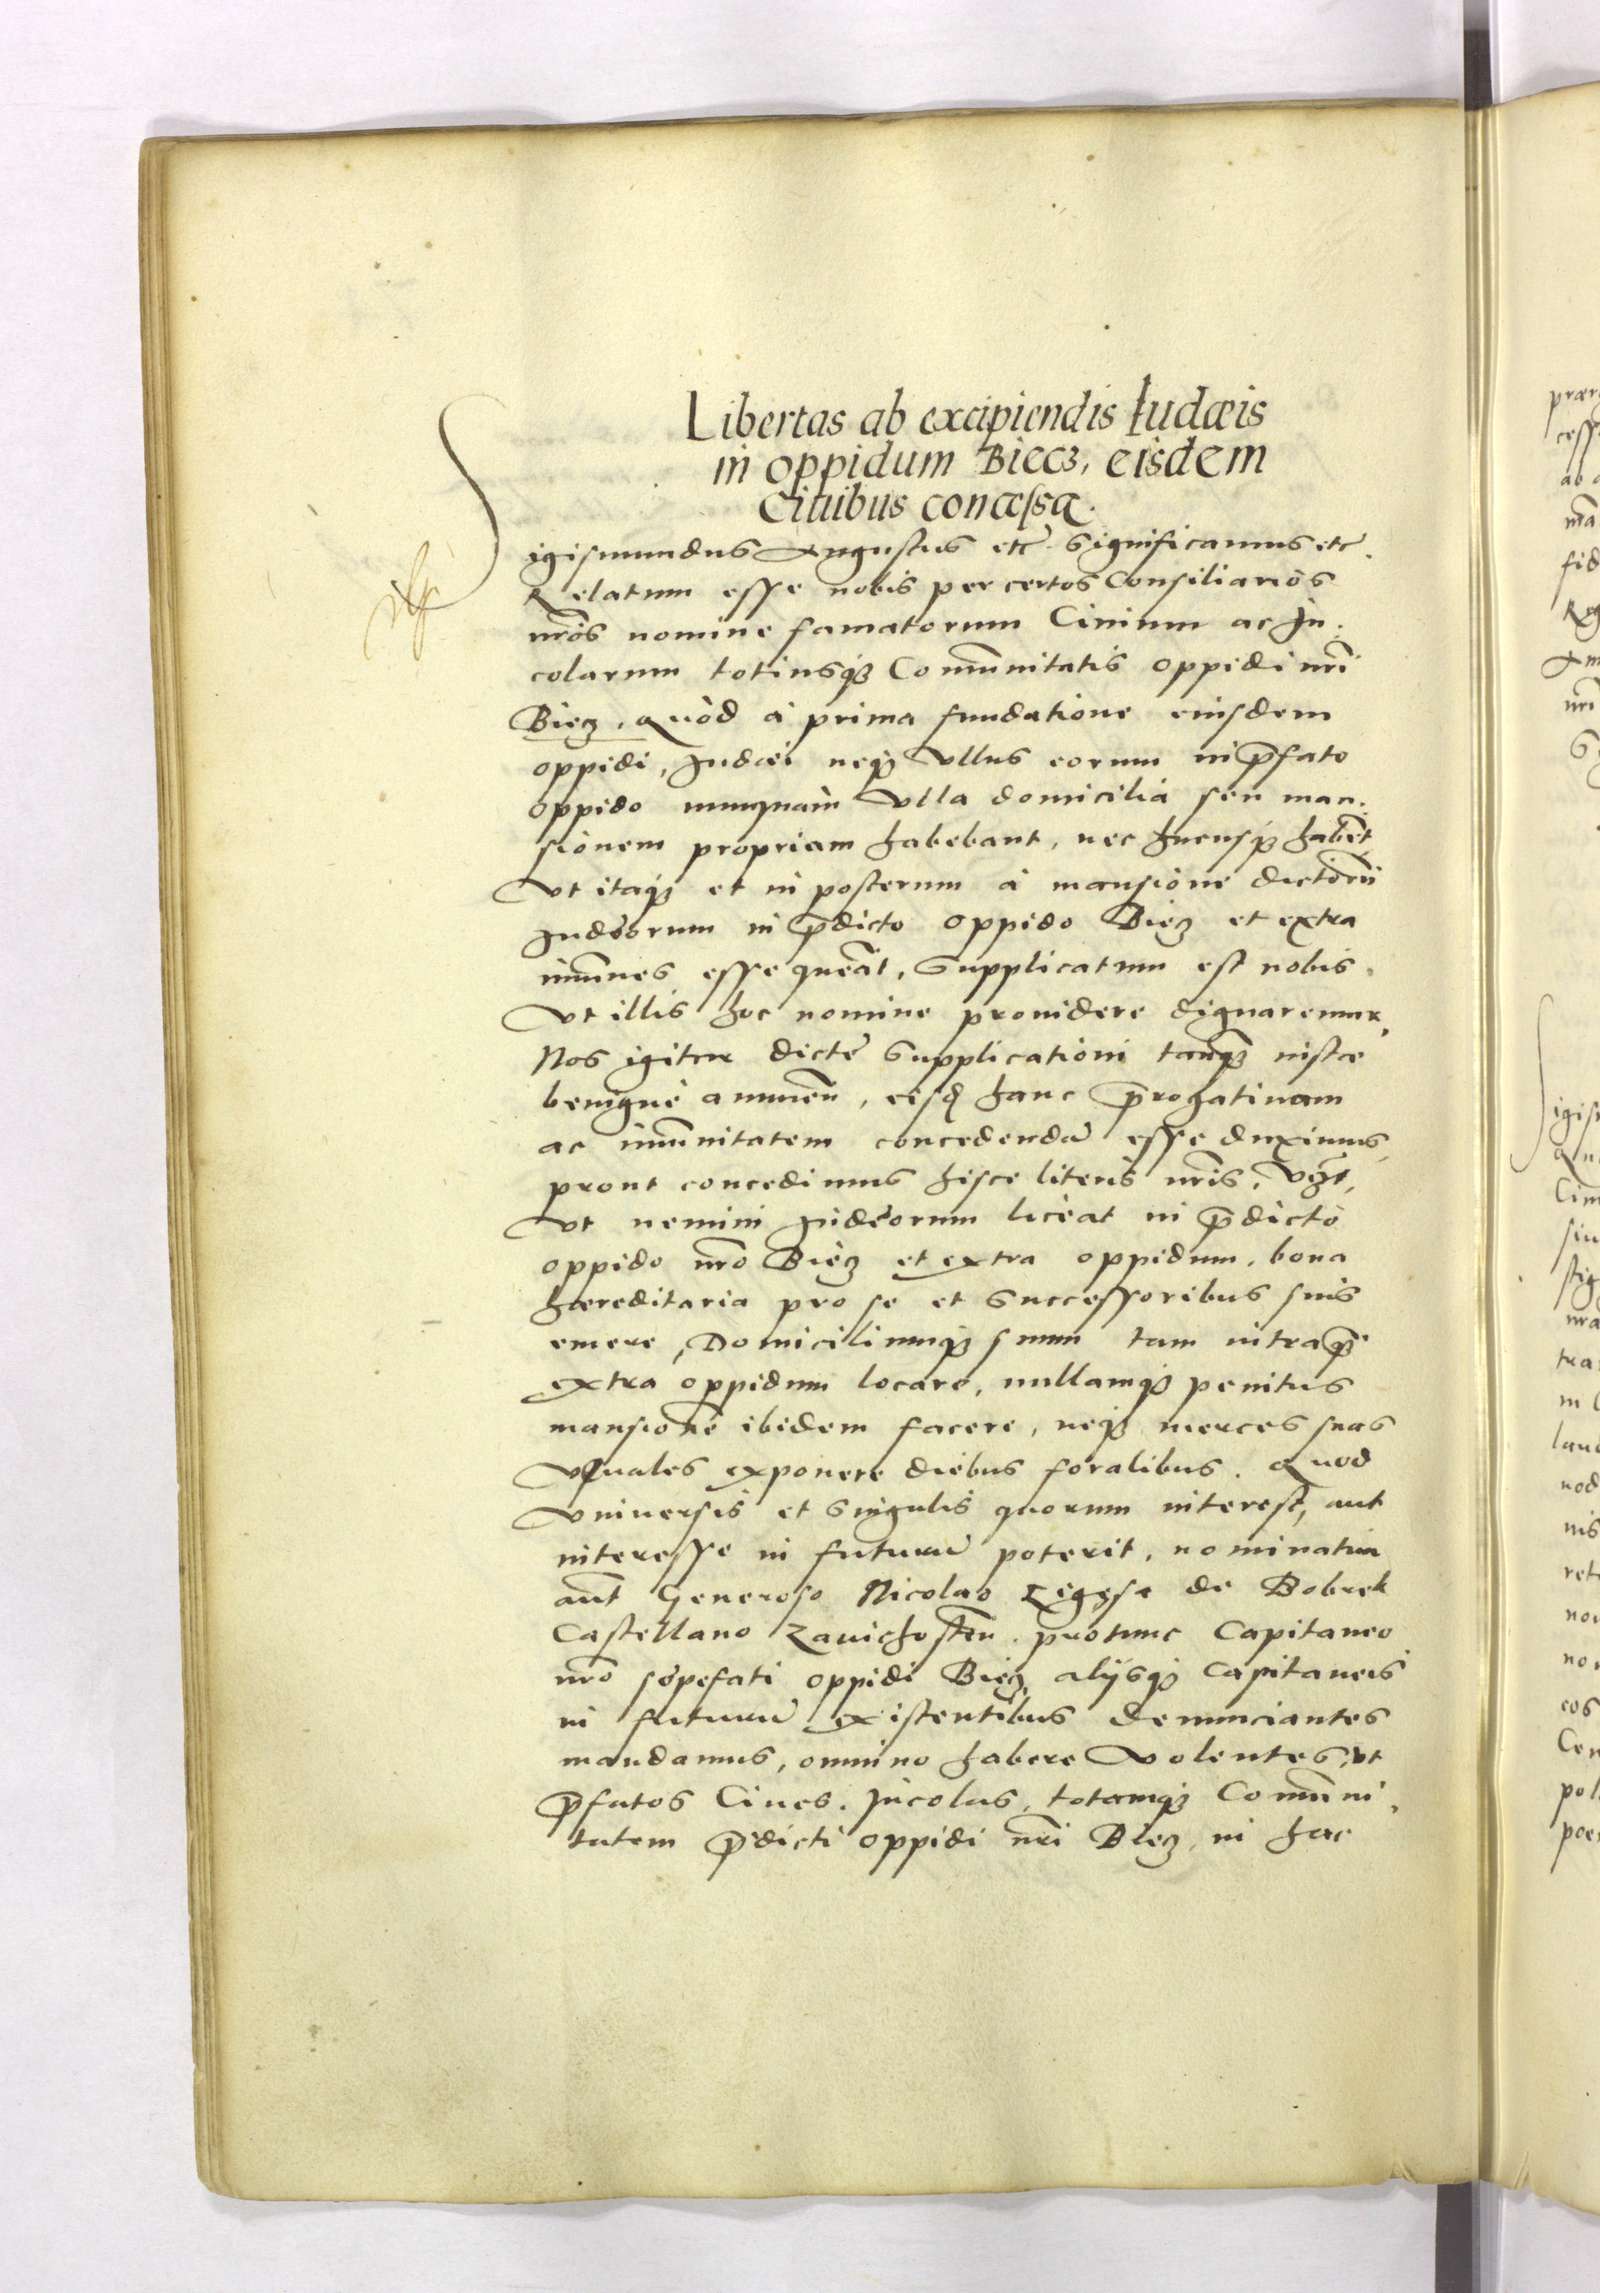 Libertas ab excipiendis Iudæis
in oppidum Biecz, eisdem
Ciuibus concessa.
Sigismundus Augustus etc̃. Significamus etc̃.
Relatum esse nobis per certos Consiliarios
nr̃os nomine famatorum Ciuium ac In-
colarum totiusq̃ Com̃unitatis oppidi nr̃i
Biecz. Quòd à prima fundatione eiusdem
oppidi, Iudæi neq̃ vllus eorum in p̃fato
oppido nunquam vlla domicilia seu man-
sionem propriam habebant, nec hucusq̃ habẽt,
Vt itaq̃ et in posterum à mansione dictorũ
Iudęorum in p̃dicto oppido Biecz et extra
im̃unes esse queãt, Supplicatum est nobis.
Vt illis hoc nomine prouidere dignaremur.
Nos igitur dictę Supplicationi tanq̃ iustæ
benignè annuen̄, eisd̃ hanc p̃rogatiuam
ac im̃unitatem concedendã esse duximus,
prout concedimus hisce literis nr̃is, vig̃t,
Vt nemini Iudęorum liceat in p̃dicto
oppido nr̃o Biecz et extra oppidum, bona
hæreditaria pro se et Successoribus suis
emere, Domiciliumq̃ suum tam intra q̃
extra oppidum locare, nullamq̃ penitus
mansionẽ ibidem facere, neq̃ merces suas
vsuales exponere diebus foralibus. Quod
Vniuersis et Singulis quorum interest, aut
interesse in futurũ poterit, nominatim
aũt Generoso Nicolao Ligęza de Bobrek
Castellano Zauichosten̄. protunc Capitaneo
nr̃o sępefati oppidi Biecz, alijsq̃ Capitaneis
in futurũ existentibus denunciantes
mandamus, omnino habere volentes, vt
p̃fatos Ciues, Incolas, totamq̃ Com̃uni-
tatem p̃dicti oppidi nr̃i Biecz, in hac